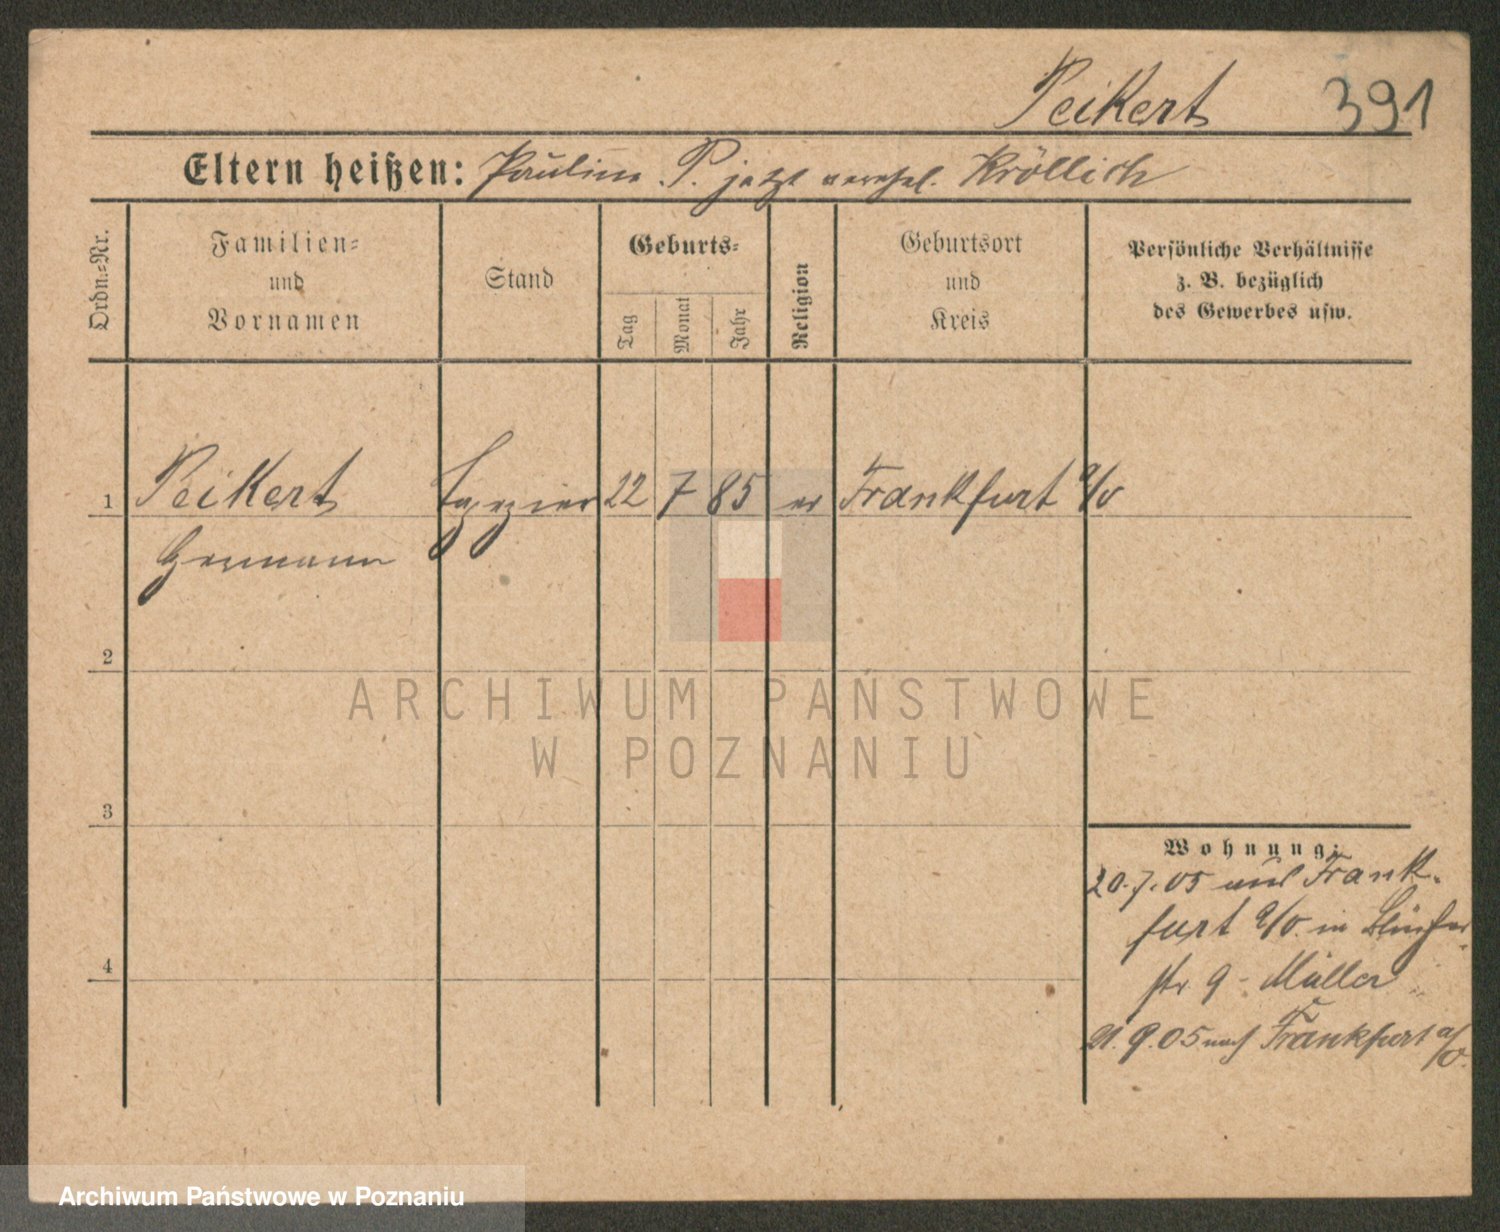 Peikert 391
Eltern heißen: Pauline P. jetzt verehel. Kröllich
Ordn.=Nr.
Familien=
und
Vornamen
Stand
Geburts=
Tag
Monat
Jahr
Religion
Geburtsort
und
Kreis
Persönliche Verhältnisse
z. B. bezüglich
des Gewerbes usw.
1 Peikert Tapezier 22 7 85 ev Frankfurt a/O
Hermann
2
3
4
Wohnung:
20.7.05 aus Frank-
furt a/O. in Blücher
str 9 - Müller
21.9.05 nach Frankfurt a/O.
ARCHIWUM PAŃSTWOWE
W POZNANIU
Archiwum Państwowe w Poznaniu